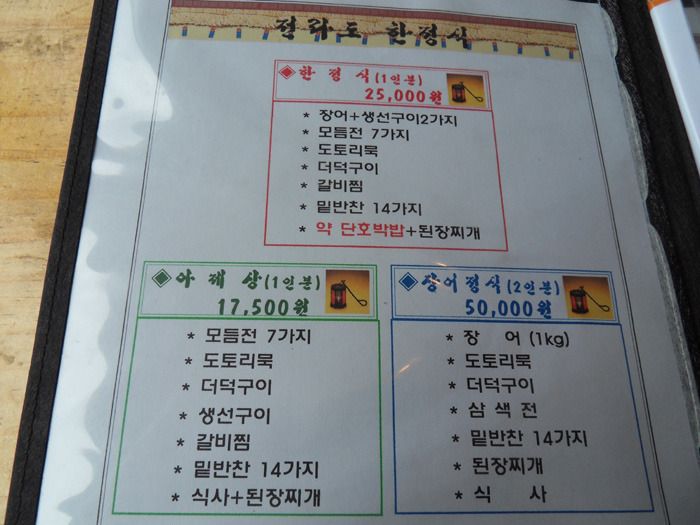 전라도 한정식
◈한 정 식(1인분)
25,000원
* 장어+생선구이2가지
* 모듬전 7가지
* 도토리묵
* 더덕구이
* 갈비찜
* 밑반찬 14가지
* 약 단호박밥+된장찌개
◈아 래 상(1인분)
17,500원
* 모듬전 7가지
* 도토리묵
* 더덕구이
* 생선구이
* 갈비찜
* 밑반찬 14가지
* 식사+된장찌개
◈장어정식(2인분)
50,000원
* 장 어 (1kg)
* 도토리묵
* 더덕구이
* 삼 색 전
* 밑반찬 14가지
* 된장찌개
* 식 사